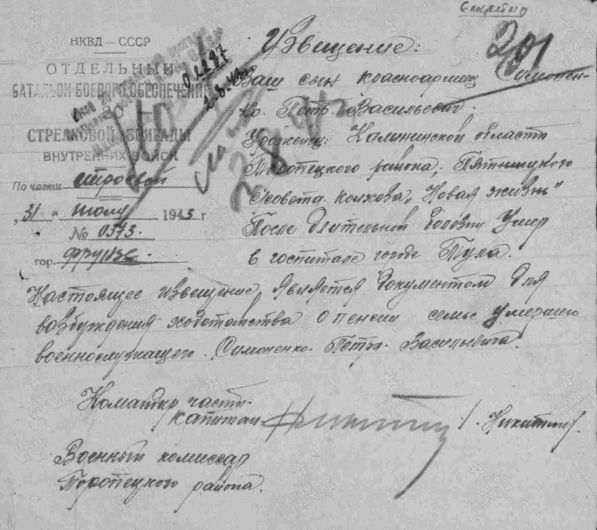 Секретно
201
НКВД — СССР
ОТДЕЛЬНЫЙ
БАТАЛЬОН БОЕВОГО ОБЕСПЕЧЕНИЯ
СТРЕЛКОВОЙ БРИГАДЫ
ВНУТРЕННИХ ВОЙСК
По части строевой
„31“ июля 1943 г
№ 0373.
гор. Фрунзе.
Извещение:
Ваш сын красноармеец Симонен-
ко. Петр. Васильевич.
Калининской области
района, Пятницкого
колхоза „Новая жизнь"
После длительной болезни умер
в госпитале города Тула.
Настоящее извещение является документом для
возбуждения ходотайства о пенсии семье умершего
военнослужащего. Симоненко. Петра. Васильевича.
Командир части.
капитан / Никитин/.
Военный комиссар
района.